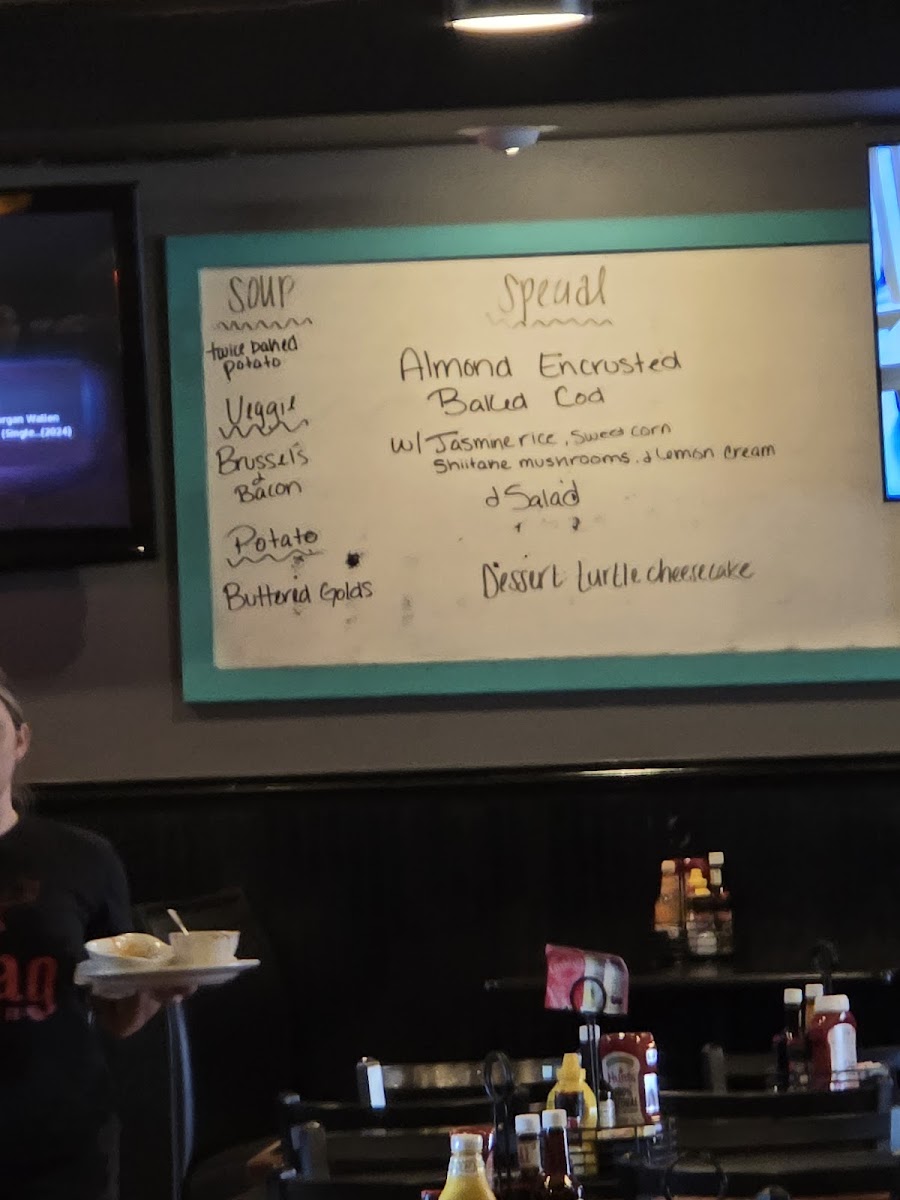 SOUP
twice baked
potato
Veggie
Brussel's
&
Bacon
Potato
Buttered Golds
Special
Almond Encrusted
Baked Cod
w/ Jasmine rice, Sweet corn
Shiitane mushrooms, & Lemon cream
& Salad
Dessert turtle cheesecake
organ Wallen
(Single..(2024)
ag